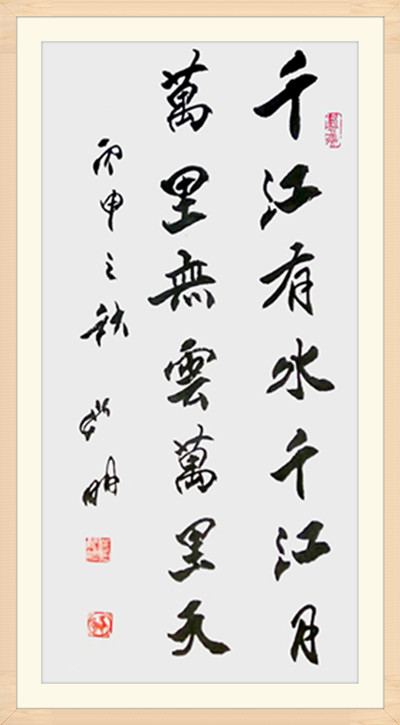 千江有水千江月
萬里無雲萬里天
丙申之秋 明